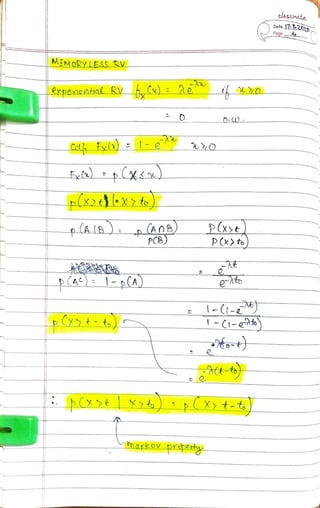 classmate
Date 17-3-2020
Page
MEMORYLESS RV
exponential RV fx(x) = λe^-λx if x≥0
= 0 o.w.
cdf Fx(x) = 1 - e^-λx x≥0
Fx(x) = p(X≤x)
p(X>t | X>t0)
p(A|B) = p(A∩B) / P(B) P(X>t) / P(X>t0)
= e^-λt / e^-λt0
p(A^c) = 1 - p(A)
= 1-(1-e^-λt) / 1-(1-e^-λt0)
p(X>t-t0)
= e^λ(t0-t)
= e^-λ(t-t0)
∴ p(X>t | X>t0) = p(X>t-t0)
markov property